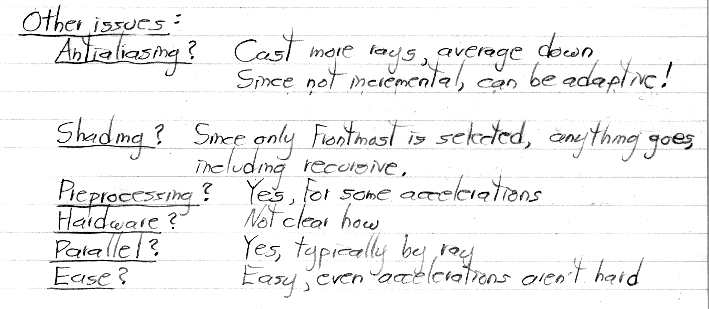 Other issues:
Antialiasing? Cast more rays, average down
Since not incremental, can be adaptive!
Shading? Since only frontmost is selected, anything goes,
including recursive.
Preprocessing? Yes, for some accelerations
Hardware? Not clear how
Parallel? Yes, typically by ray
Ease? Easy, even accelerations aren't hard